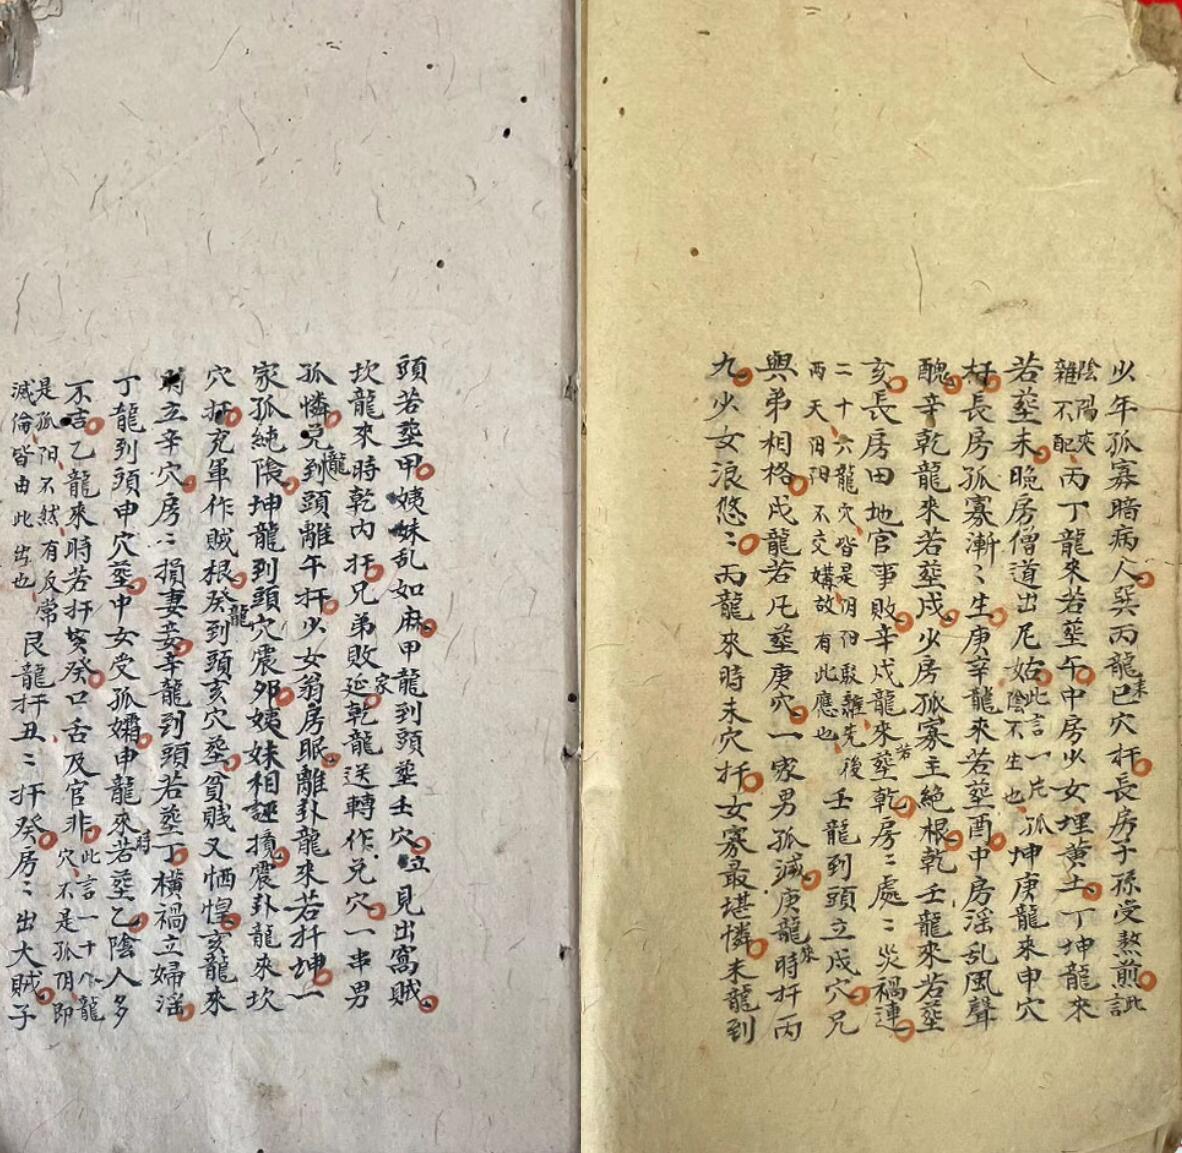 少年孤寡暗病人巽丙龍來巳穴扦長房子孫受熬煎此言
陰陽夾雜不配丙丁龍來若塟午中房少女埋黄土丁坤龍來
若塟未晚房僧道出尼姑此言一片孤陰不生也坤庚龍來申穴
扦長房孤寡漸〻生庚辛龍來若塟酉中房淫乱風聲
醜辛乾龍來若塟戌少房孤寡主絶根乾壬龍來若塟
亥長房田地官事敗辛戌龍來若塟乾房〻處〻災禍連
二十六龍穴皆是阴阳駁離先後两天阴阳不交媾故有此應也壬龍到頭立戌穴兄
與弟相格戌龍若凡塟庚穴一家男孤滅庚龍來時扦丙
九少女浪悠〻丙龍來時未穴扦女寡最堪憐未龍到
頭若塟甲姨妹乱如麻甲龍到頭塟壬穴立見出窩賊
坎龍來時乾内扦兄弟敗延家乾龍送轉作兑穴一串男
孤憐兑龍到頭離午扦少女翁房眠離卦龍來若扦坤一
家孤純陰坤龍到頭穴震夘姨妹相誣攬震卦龍來坎
穴扦充軍作賊根癸龍到頭亥穴塟貧賤又恓惶亥龍來
時立辛穴房〻損妻妾辛龍到頭若塟丁横禍立婦淫
丁龍到頭申穴塟中女受孤孀申龍來時若塟乙陰人多
不吉乙龍來時若扦亥癸口舌及官非此言一十八龍穴不是孤阴即
是孤阳不然有反常滅倫皆由此出也艮龍扦丑〻扦癸房〻出大賊子